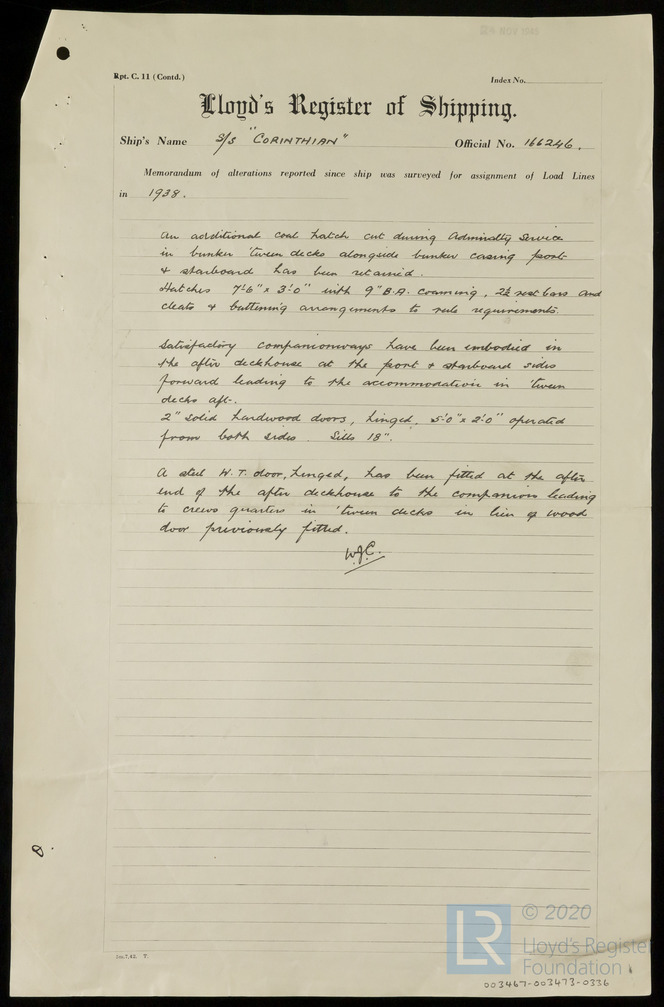 Rpt. C. 11 (Contd.)
Index No.
Lloyd's Register of Shipping.
Ship's Name S/S "CORINTHIAN" Official No. 166246.
Memorandum of alterations reported since ship was surveyed for assignment of Load Lines
in 1938.
An additional coal hatch cut during Admiralty Service
in bunker 'tween decks alongside bunker casing port
& starboard has been retained.
Hatches 7'-6" x 3'-0" with 9" B.A. coaming, 2½ rest bars and
cleats & battening arrangements to rule requirements.
Satisfactory companionways have been embodied in
the after deckhouse at the port & starboard sides
forward leading to the accommodation in 'tween
decks aft.
2" solid hardwood doors, hinged, 5'-0" x 2'-0" operated
from both sides. Sills 18".
A steel W.T. door, hinged, has been fitted at the after
end of the after deckhouse to the companion leading
to crews quarters in 'tween decks in lieu of wood
door previously fitted.
W.J.C.
8.
© 2020
LR
Lloyd's Register
Foundation
003467-003473-0336